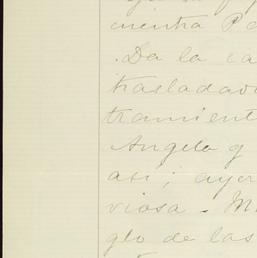 cuentra Pe
. Da la ca
trasladado
tramient
Angela y
asi; ayer
viosa. M
glo de las